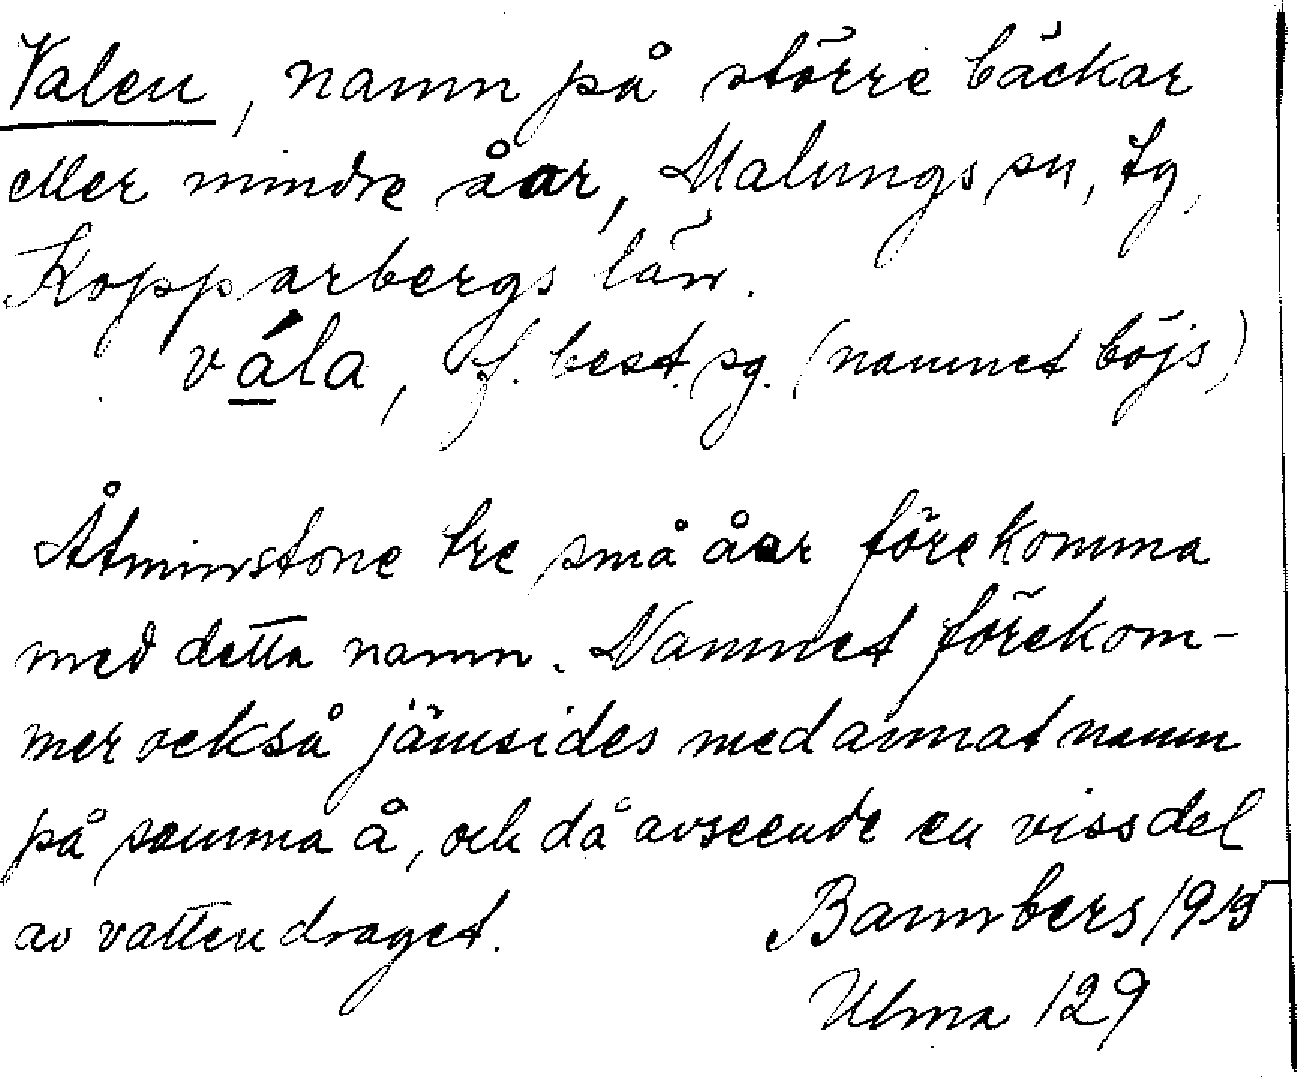 Valen, namn på större bäckar
eller mindre åar, Malungs sn, tg,
Kopparbergs län.
vála, f. best. sg. (namnet böjs)
Åtminstone tre små åar förekomma
med detta namn. Namnet förekom-
mer också jämsides med annat namn
på samma å, och då avseende en viss del
av vattendraget.
Bannbers 1919
Ulma 129